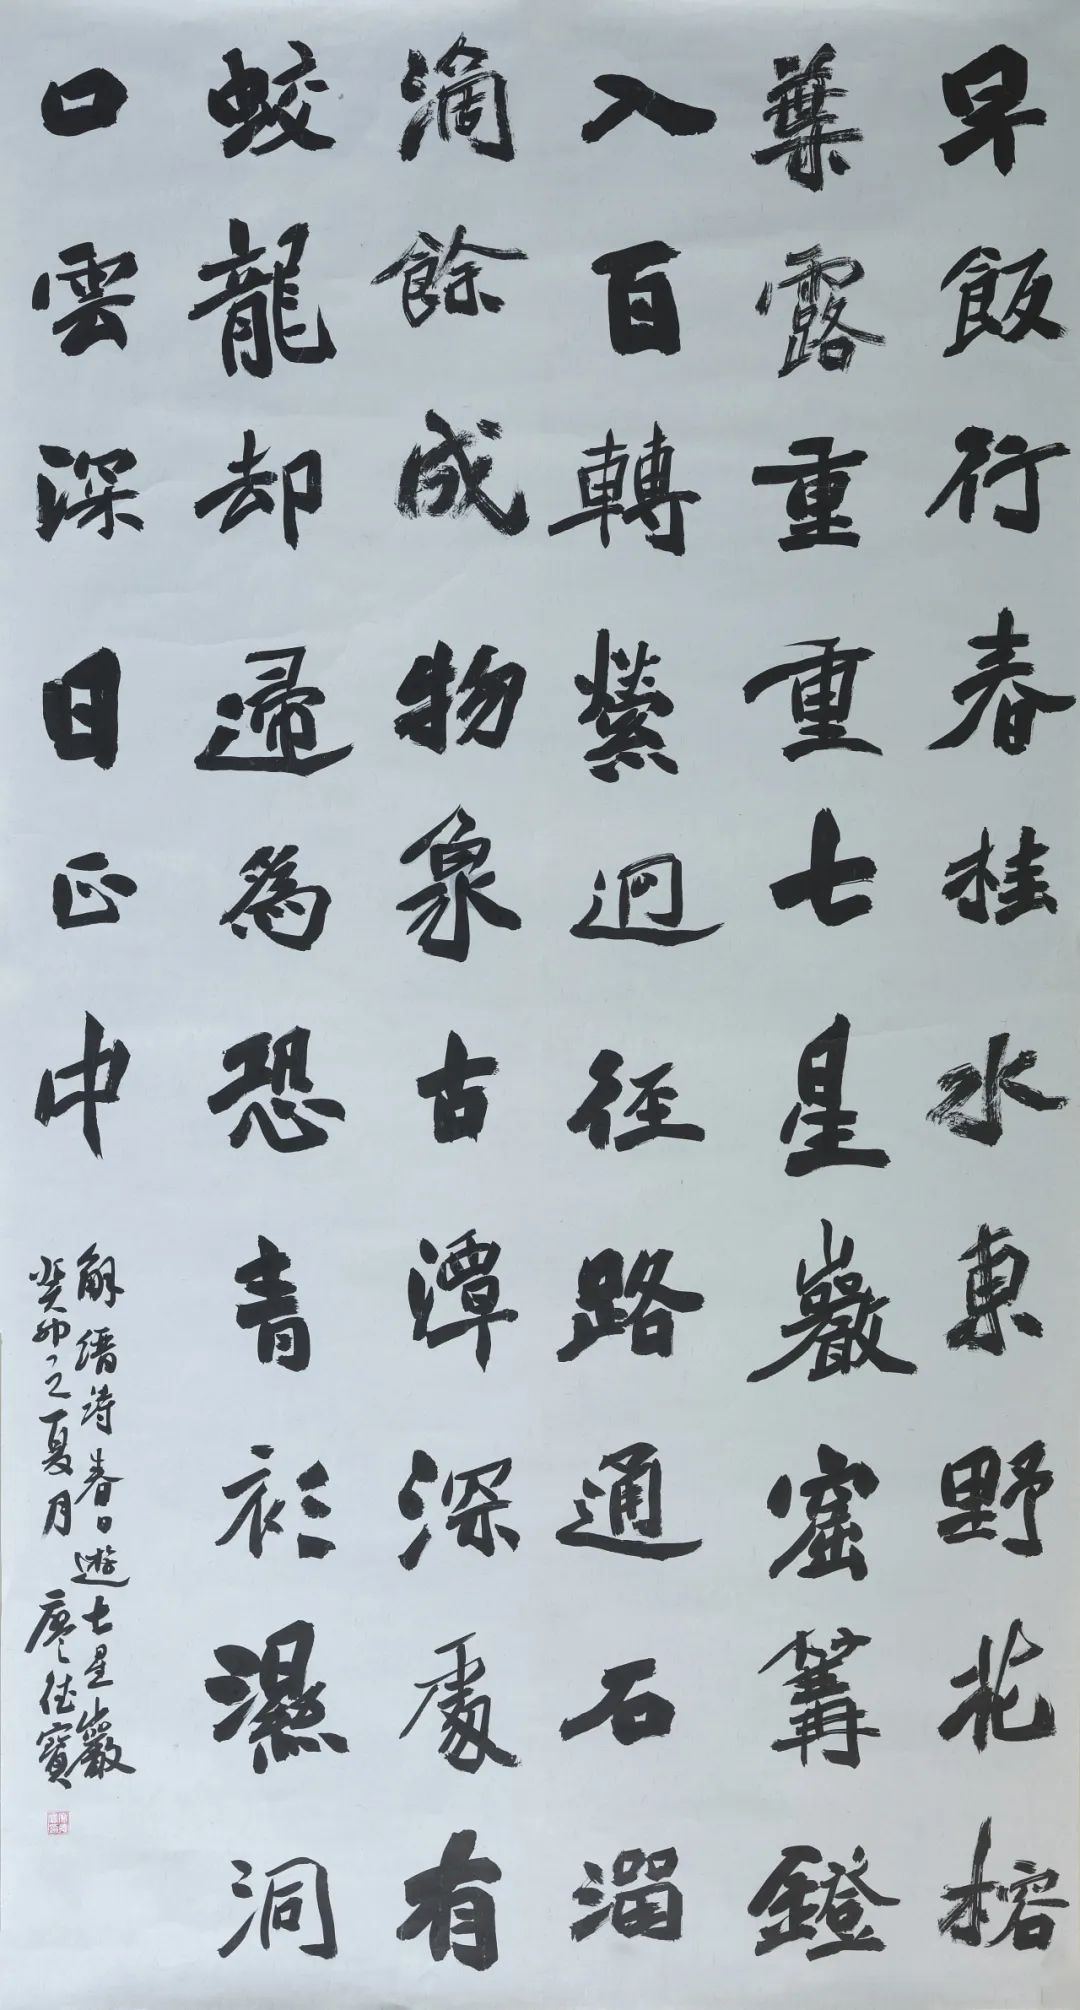 早飯行春桂水東野花榕
葉露重重七星巖窟篝鐙
入百轉縈迴徑路通石溜
滴餘成物象古潭深處有
蛟龍却歸為恐青衫濕洞
口雲深日正中
解縉詩春日遊七星巖
癸卯之夏月廖德寶